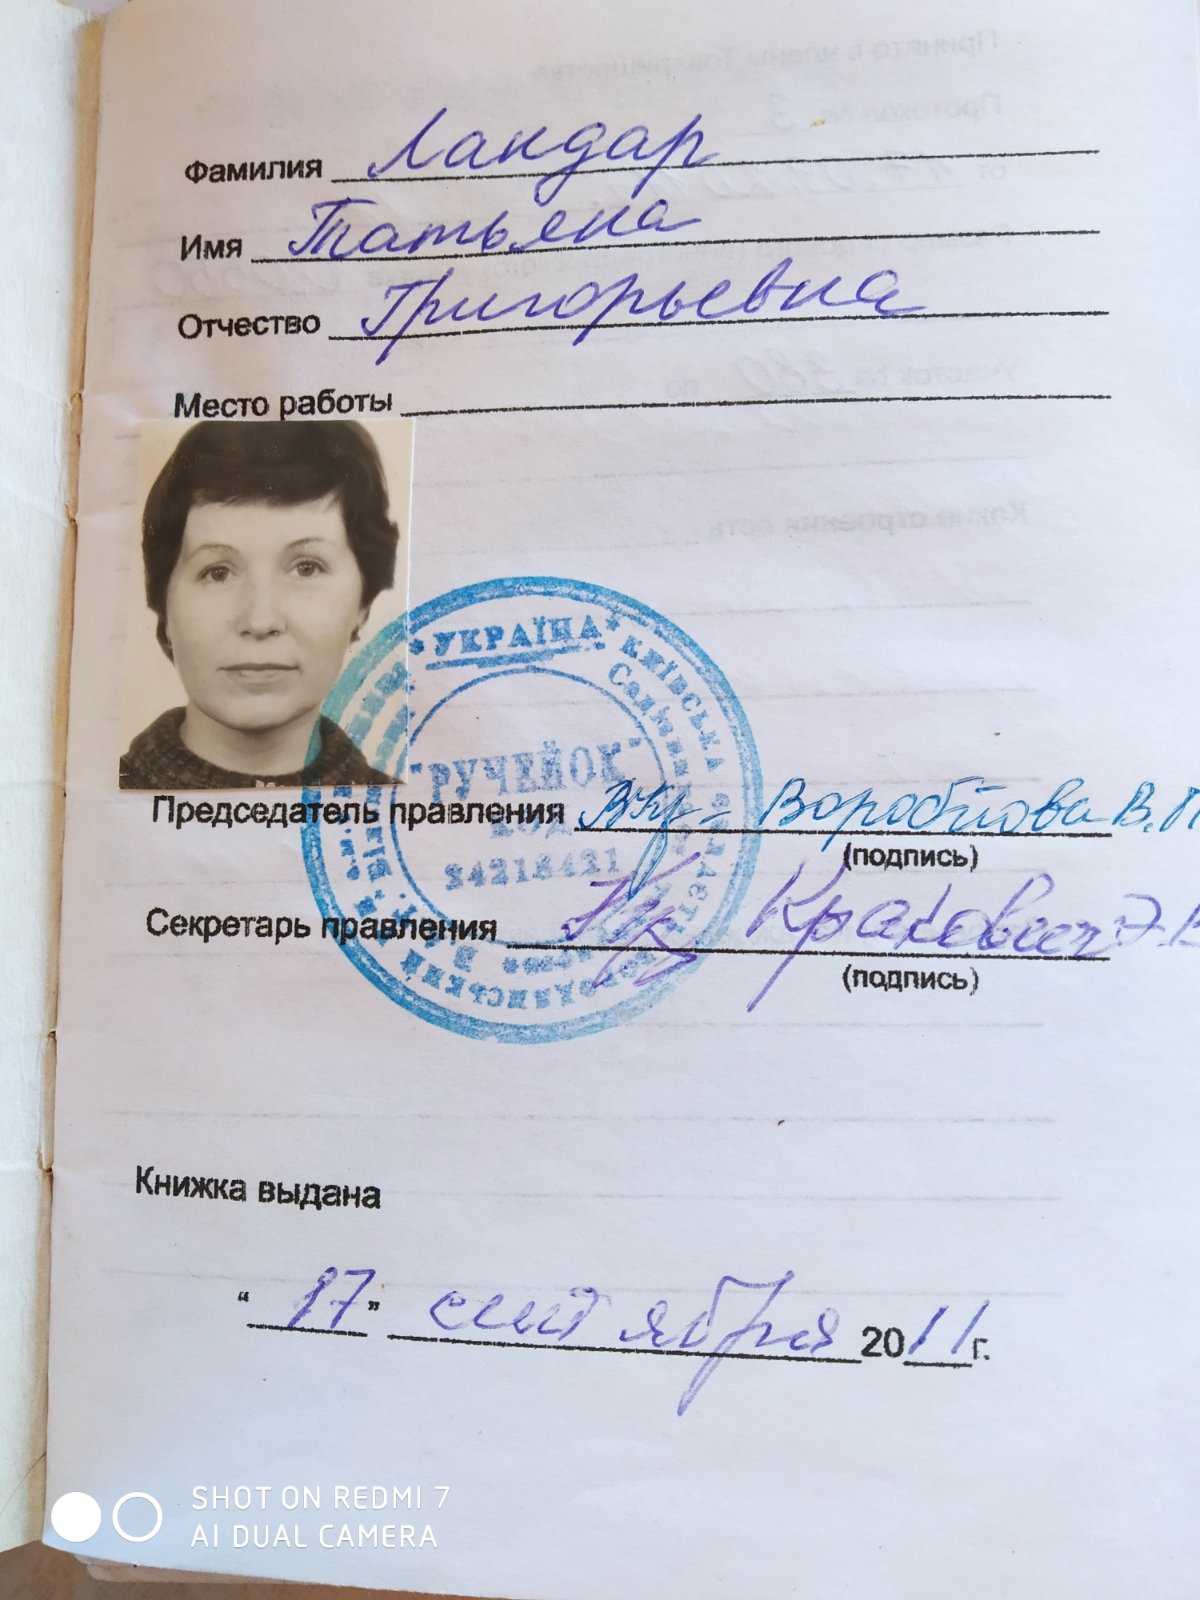 Фамилия Ландар
Имя Татьяна
Отчество Григорьевна
Место работы
* УКРАЇНА * КИЇВСЬКА
"РУЧЕЙОК"
КОД
24218421
Председатель правления Воробйова В.
(подпись)
Секретарь правления
(подпись)
Книжка выдана
"17" сентября 2011 г.
SHOT ON REDMI 7
AI DUAL CAMERA